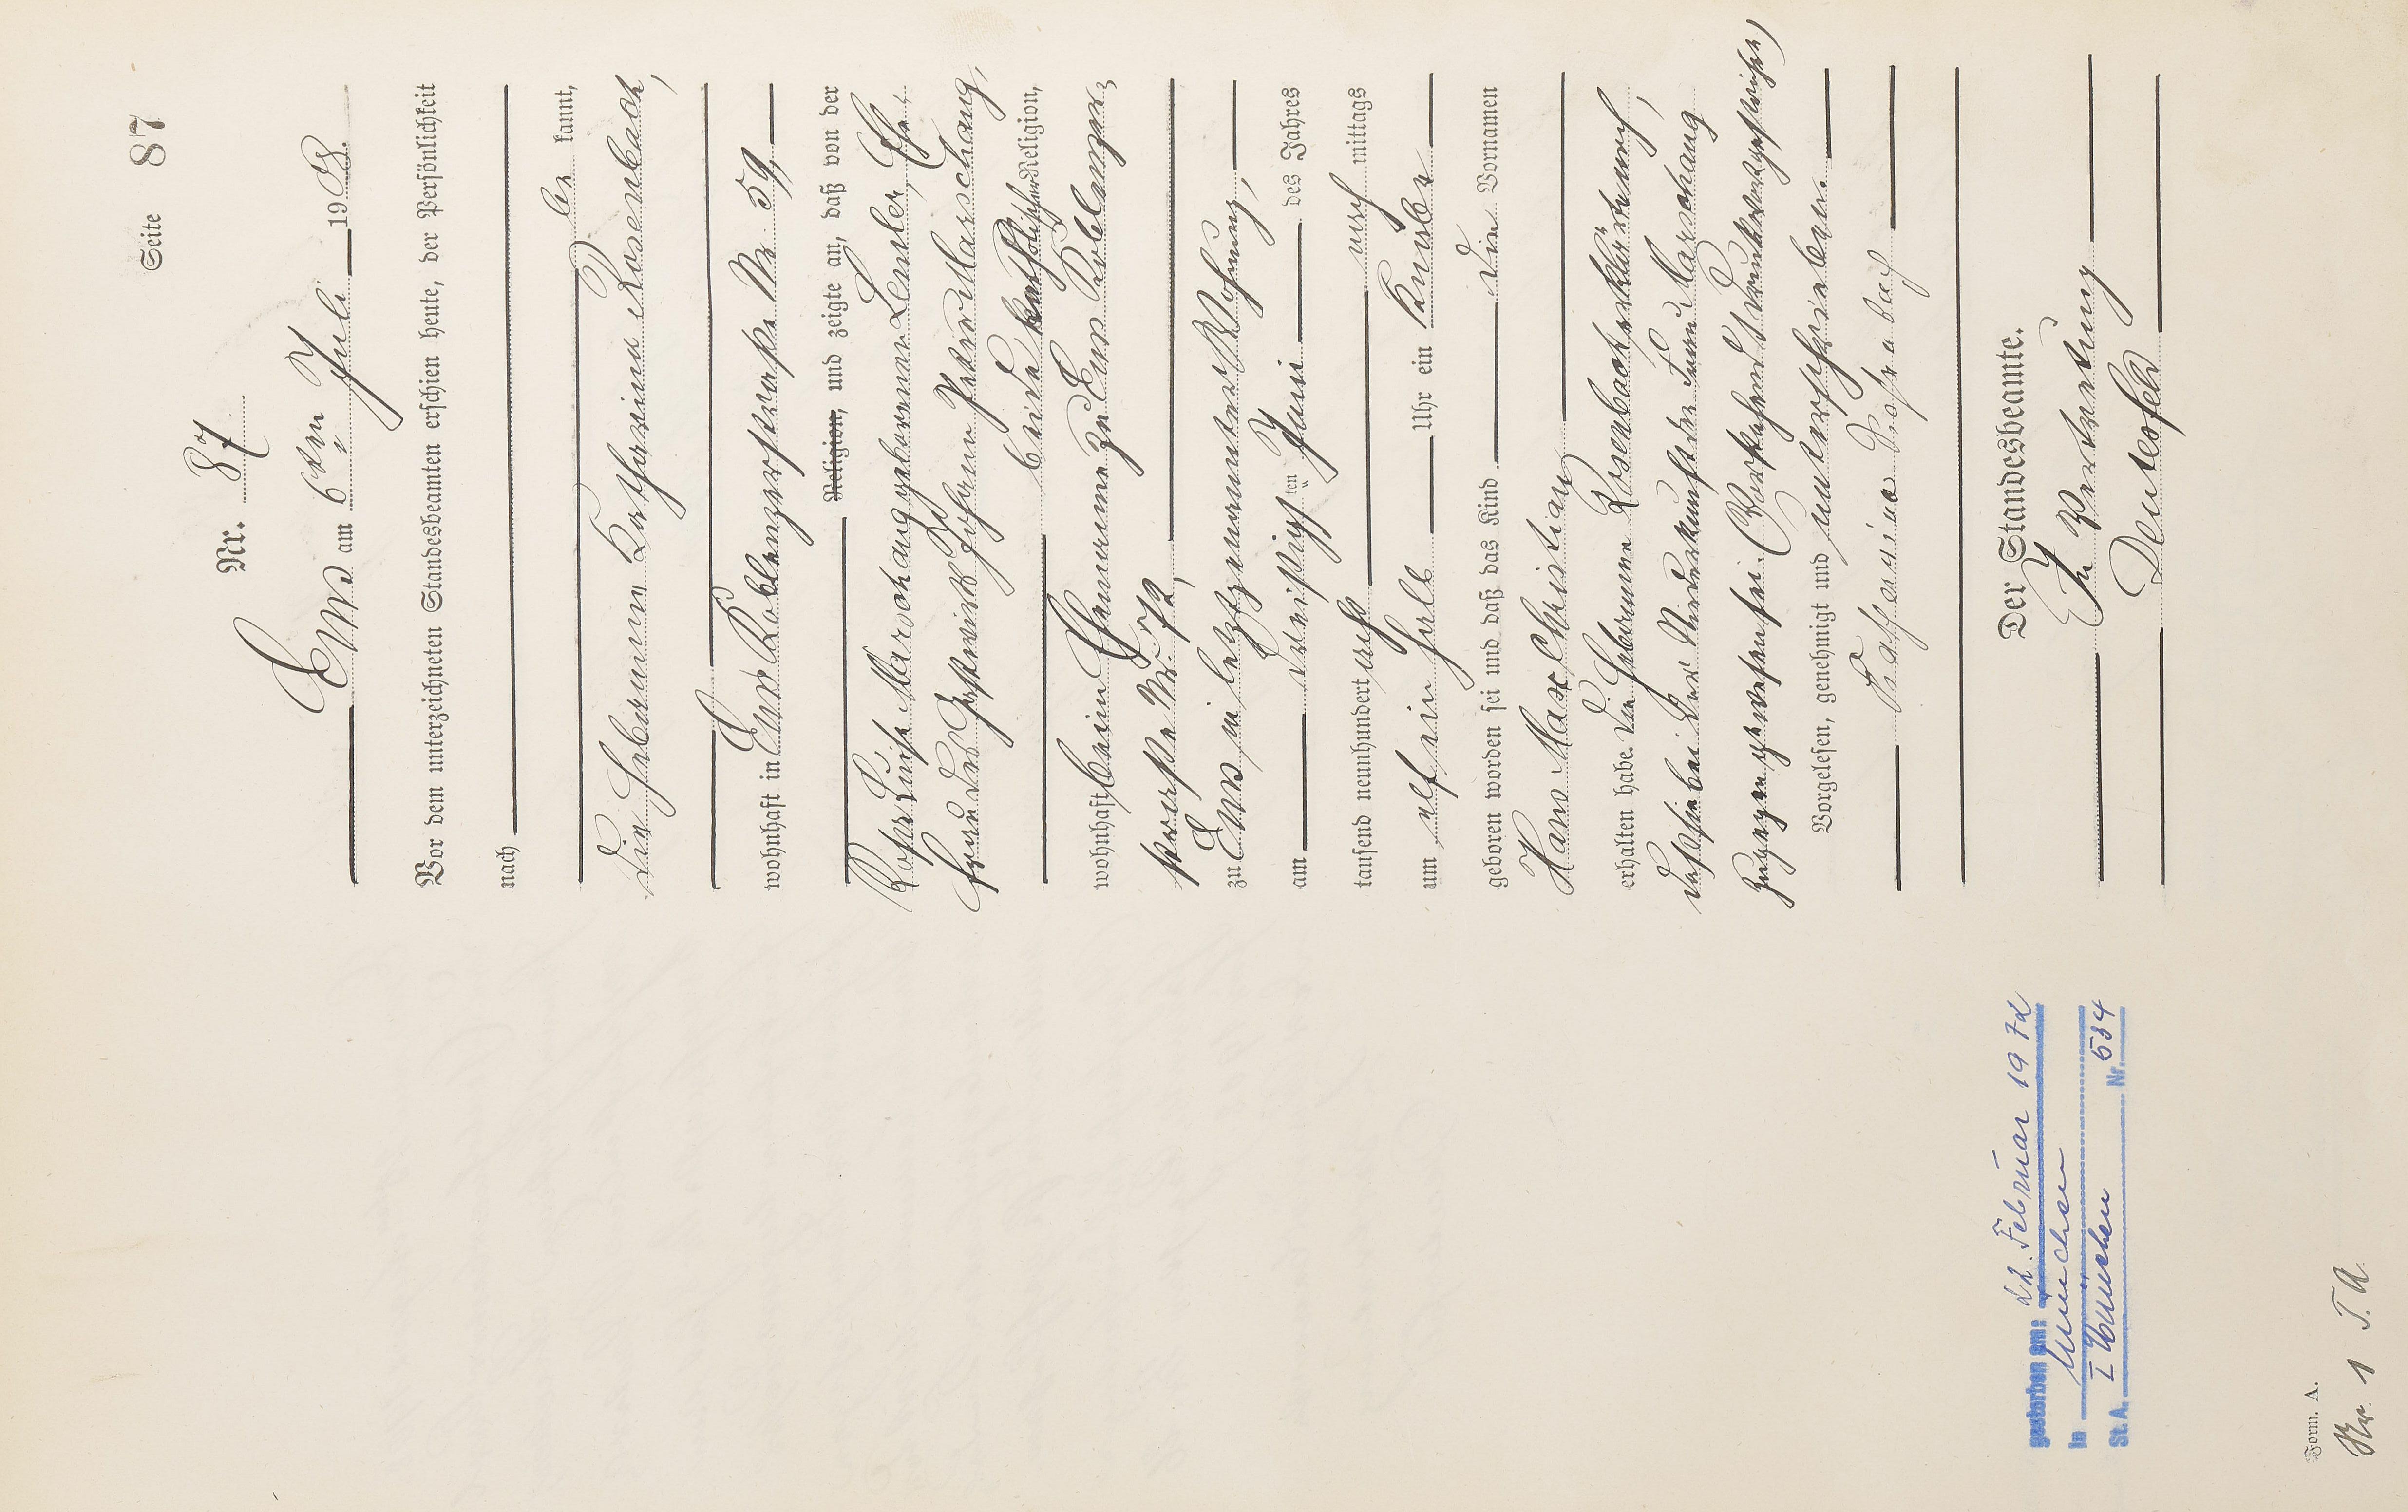 Seite 87
Nr. 87
Ems am 6ten Juli 1908.
Vor dem unterzeichneten Standesbeamten erschien heute, der Persönlichkeit
nach
be kannt,
die Hebamme Katharina Rosenbach,
wohnhaft in Ems Koblenzerstraße Nr 59,
Religion, und zeigte an, daß von der
Rosa Luise Marschang geborenen Lenler, Ehe,
frau des Johann Peter Marschang,
beide katholischer Religion,
wohnhaft beim Ehemanne zu Ems Koblenzer,
straße Nr. 72,
zu Ems in letztgenannter Wohnung,
am dreißigsten Juni des Jahres
tausend neunhundert acht nach mittags
um elf ein halb Uhr ein Knabe
geboren worden sei und daß das Kind die Vornamen
Hans Max Christian
erhalten habe. Die Hebamme Rosenbach erklärte noch,
daß sie bei der Niederkunft der Frau Marschang
zugegen gewesen sei. (Vorstehend Druckwort gestrichen)
Vorgelesen, genehmigt und unterschrieben.
Katharina Rosenbach
Der Standesbeamte.
In Vertretung
gestorben am: 22. Februar 1972
in München
St. A. I München Nr. 584
Form. A.
Nr. 1 T.A.